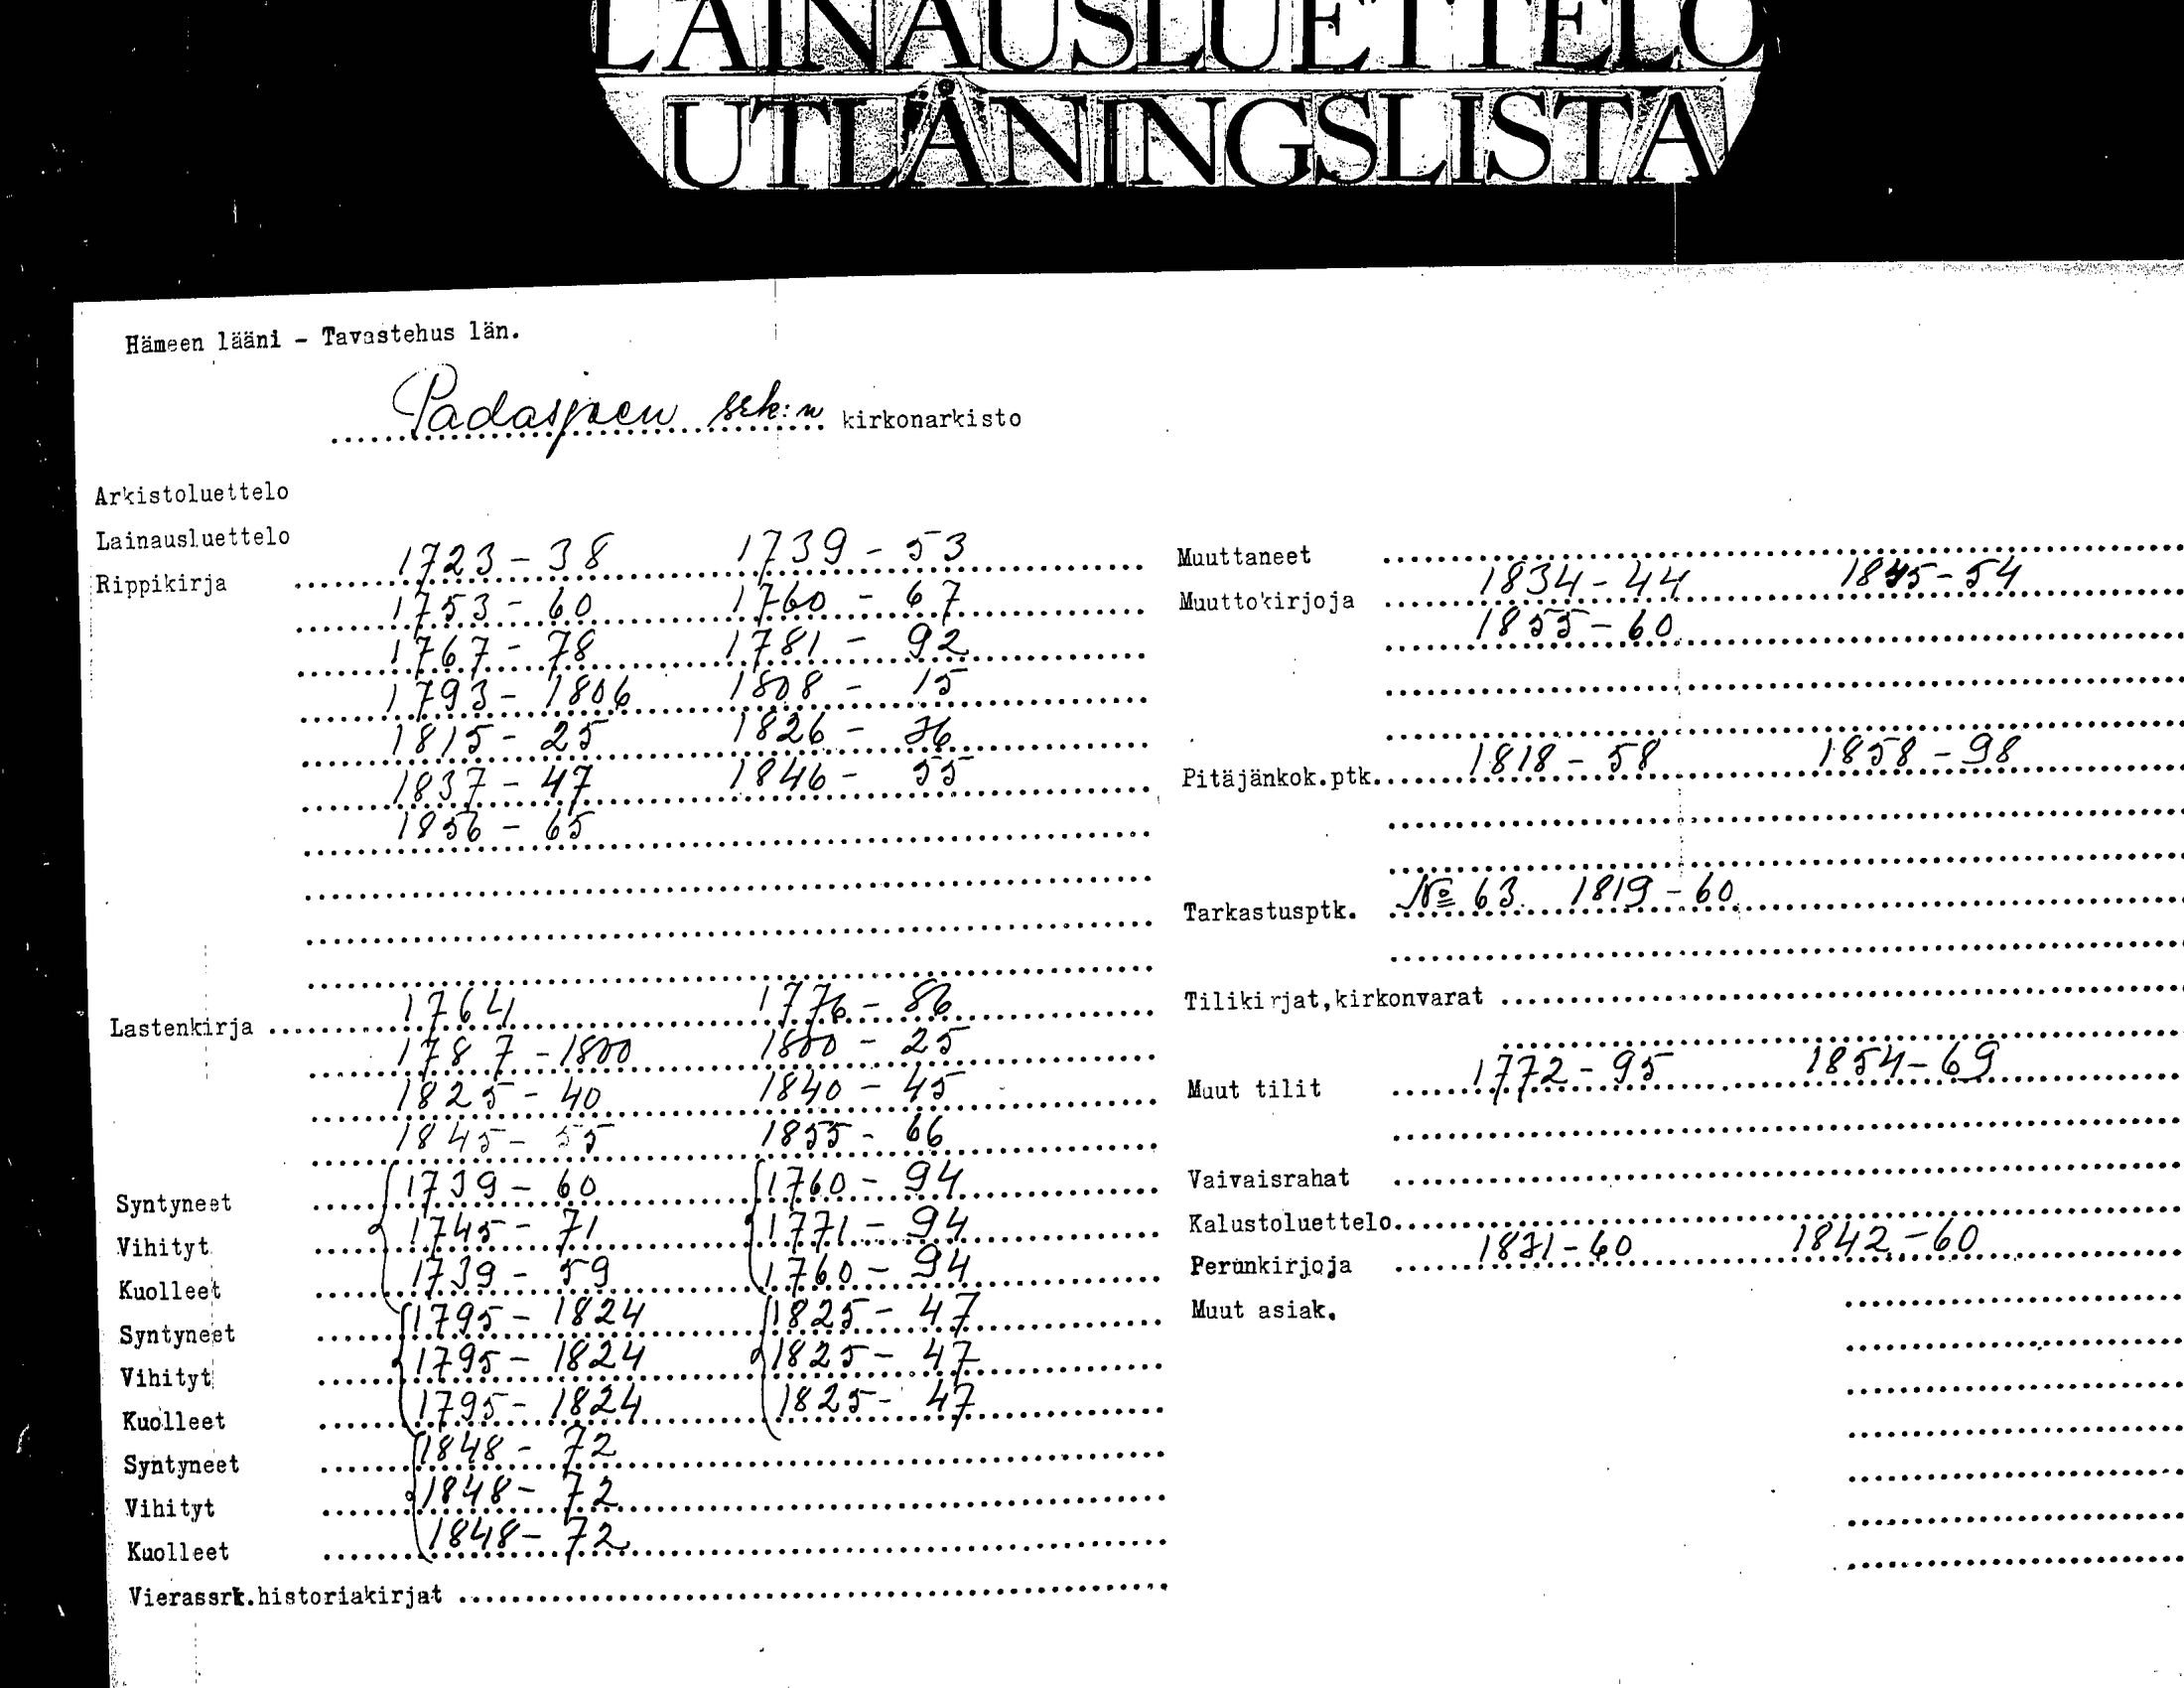 LAINAUSLUETTELO
UTLÅNINGSLISTA
Hämeen lääni - Tavastehus län.
Padasjoen srk:n kirkonarkisto
Arkistoluettelo
Lainausluettelo
Rippikirja 1723-38 1739-53
1753-60 1760-67
1767-78 1781-92
1793-1806 1808-15
1815-25 1826-36
1837-47 1846-55
1856-65
Lastenkirja 1764 1776-86
1787-1800 1800-25
1825-40 1840-45
1845-55 1855-66
Syntyneet 1739-60 1760-94
Vihityt 1745-71 1771-94
Kuolleet 1739-59 1760-94
Syntyneet 1795-1824 1825-47
Vihityt 1795-1824 1825-47
Kuolleet 1795-1824 1825-47
Syntyneet 1848-72
Vihityt 1848-72
Kuolleet 1848-72
Vierassrk.historiakirjat
Muuttaneet
Muuttokirjoja 1834-44 1845-54
1855-60
Pitäjänkok.ptk. 1818-58 1858-98
Tarkastusptk. No 63 1819-60
Tilikirjat,kirkonvarat
Muut tilit 1772-95 1854-69
Vaivaisrahat
Kalustoluettelo
Perunkirjoja 1842-60
Muut asiak.